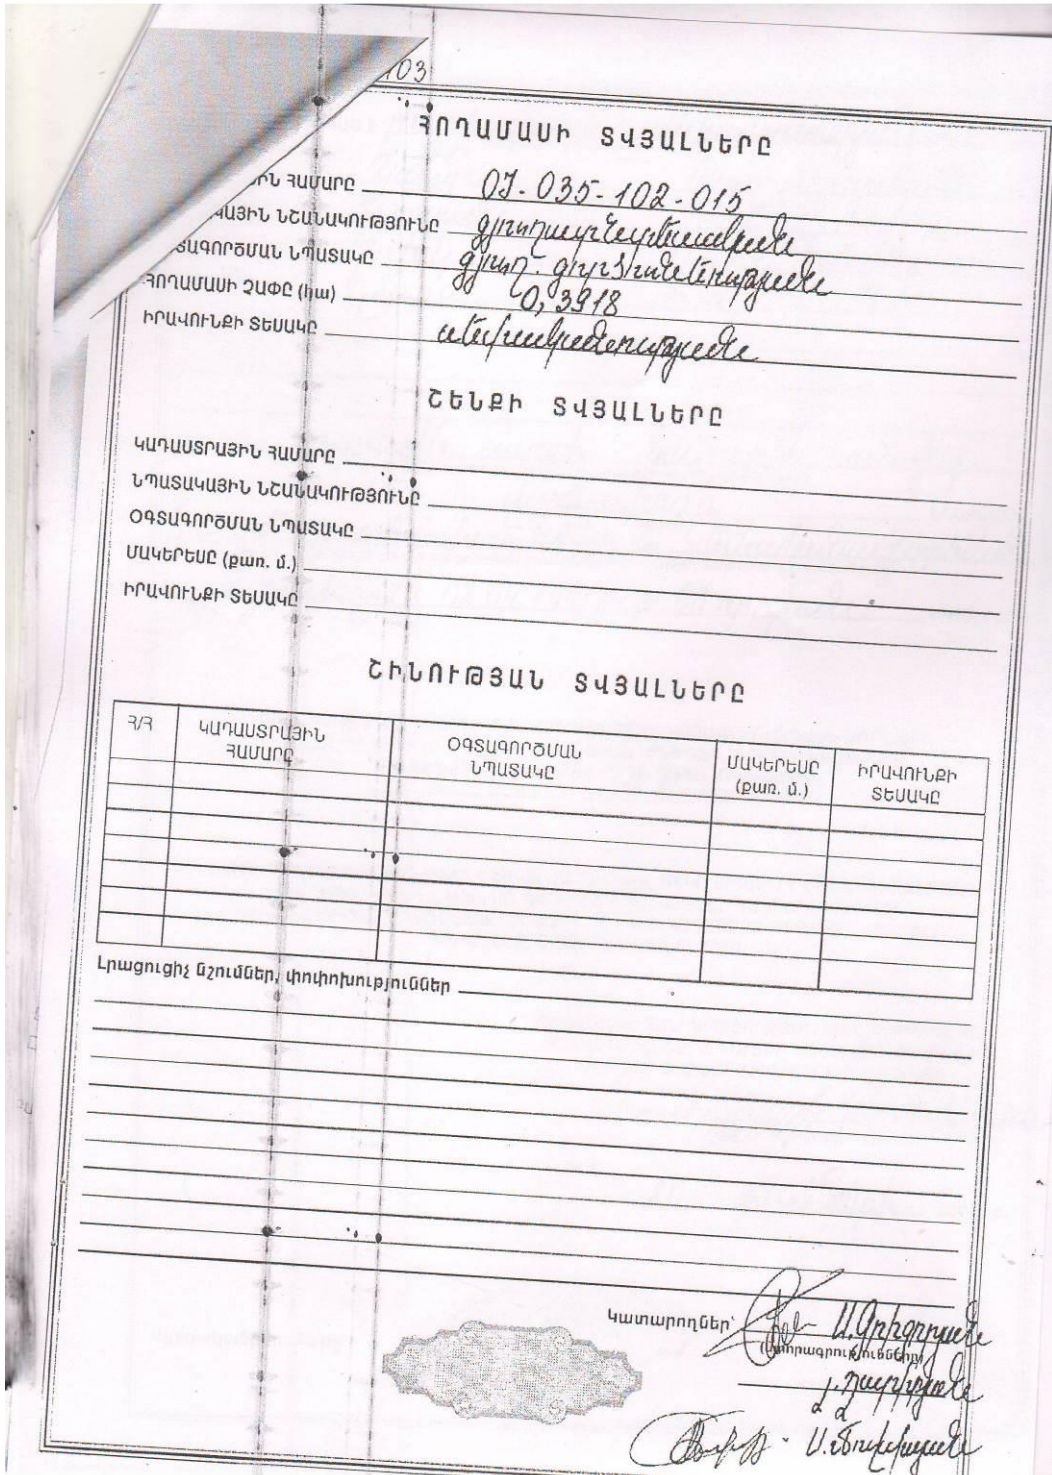 103
ՀՈՂԱՄԱՍԻ ՏՎՅԱԼՆԵՐԸ
ՀԱՄԱՐԸ 07-035-102-015
ՆՇԱՆԱԿՈՒԹՅՈՒՆԸ գյուղատնտեսական
ՆՊԱՏԱԿԸ
ՀՈՂԱՄԱՍԻ ՉԱՓԸ (հա) 0,3918
ԻՐԱՎՈՒՆՔԻ ՏԵՍԱԿԸ սեփականության
ՇԵՆՔԻ ՏՎՅԱԼՆԵՐԸ
ԿԱԴԱՍՏՐԱՅԻՆ ՀԱՄԱՐԸ
ՆՊԱՏԱԿԱՅԻՆ ՆՇԱՆԱԿՈՒԹՅՈՒՆԸ
ՕԳՏԱԳՈՐԾՄԱՆ ՆՊԱՏԱԿԸ
ՄԱԿԵՐԵՍԸ (քառ. մ.)
ԻՐԱՎՈՒՆՔԻ ՏԵՍԱԿԸ
ՇԻՆՈՒԹՅԱՆ ՏՎՅԱԼՆԵՐԸ
Հ/Հ ԿԱԴԱՍՏՐԱՅԻՆ ՀԱՄԱՐԸ ՕԳՏԱԳՈՐԾՄԱՆ ՆՊԱՏԱԿԸ ՄԱԿԵՐԵՍԸ (քառ. մ.) ԻՐԱՎՈՒՆՔԻ ՏԵՍԱԿԸ
Լրացուցիչ նշումներ, փոփոխություններ
Կատարողներ՝ Ա.Գրիգորյան
(ստորագրություններ)